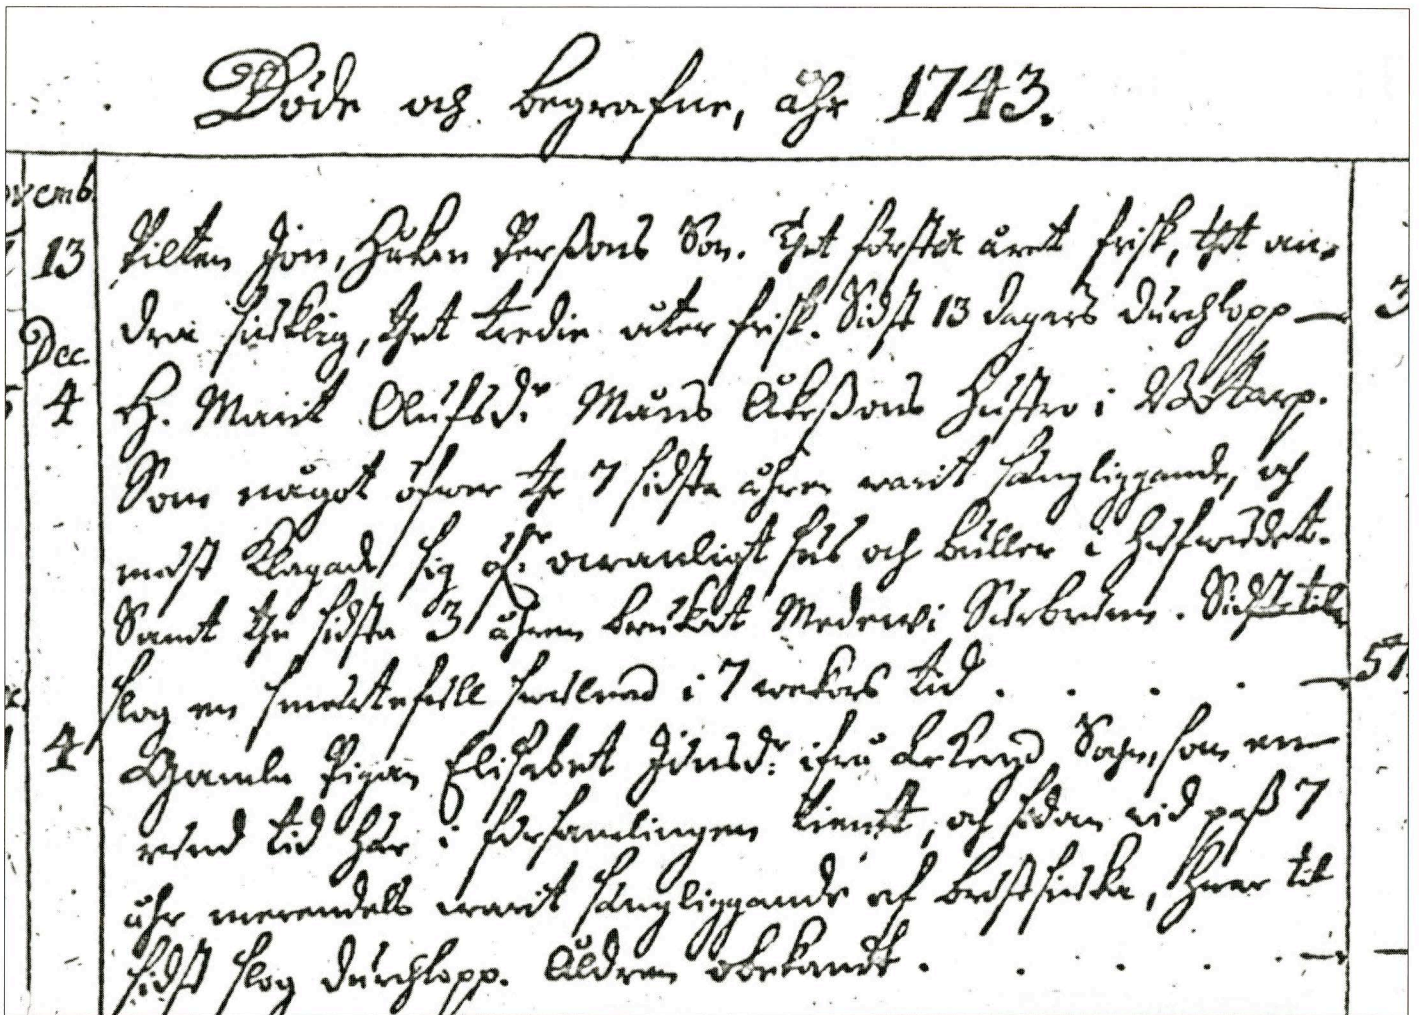 Döde och begrafne, åhr 1743.
vemb.
13 Pilten Jon, Håkan Perßons Son. Thet första året frisk, thet an-
dra siuklig, thet tredie åter frisk. Sidst 13 dagars Durchlopp — 3
Dec.
4 H. Marit Olufsdr. Måns Åkeßons Hustro i
Som något öfwer the 7 sidsta åhren warit sängliggande, och
mäst klagade sig öfr. owanligt sus och buller i hufwudet.
Samt the sidsta 3 åhren brukat Medewi Surbrunn. Sidst till
slog en smärtefull swulnad i 7 wekors tid . . . . — 57
4 Gamla Pigan Elisabet Jönsdr. ifrå Lekeryd Sochn, som en
rund tid här i församlingen tient, och sedan wid paß 7
åhr merendels warit sängliggande af bröstsiuka, hwar til
sidst slog Durchlopp. Åldren obekandt . . . . . — —